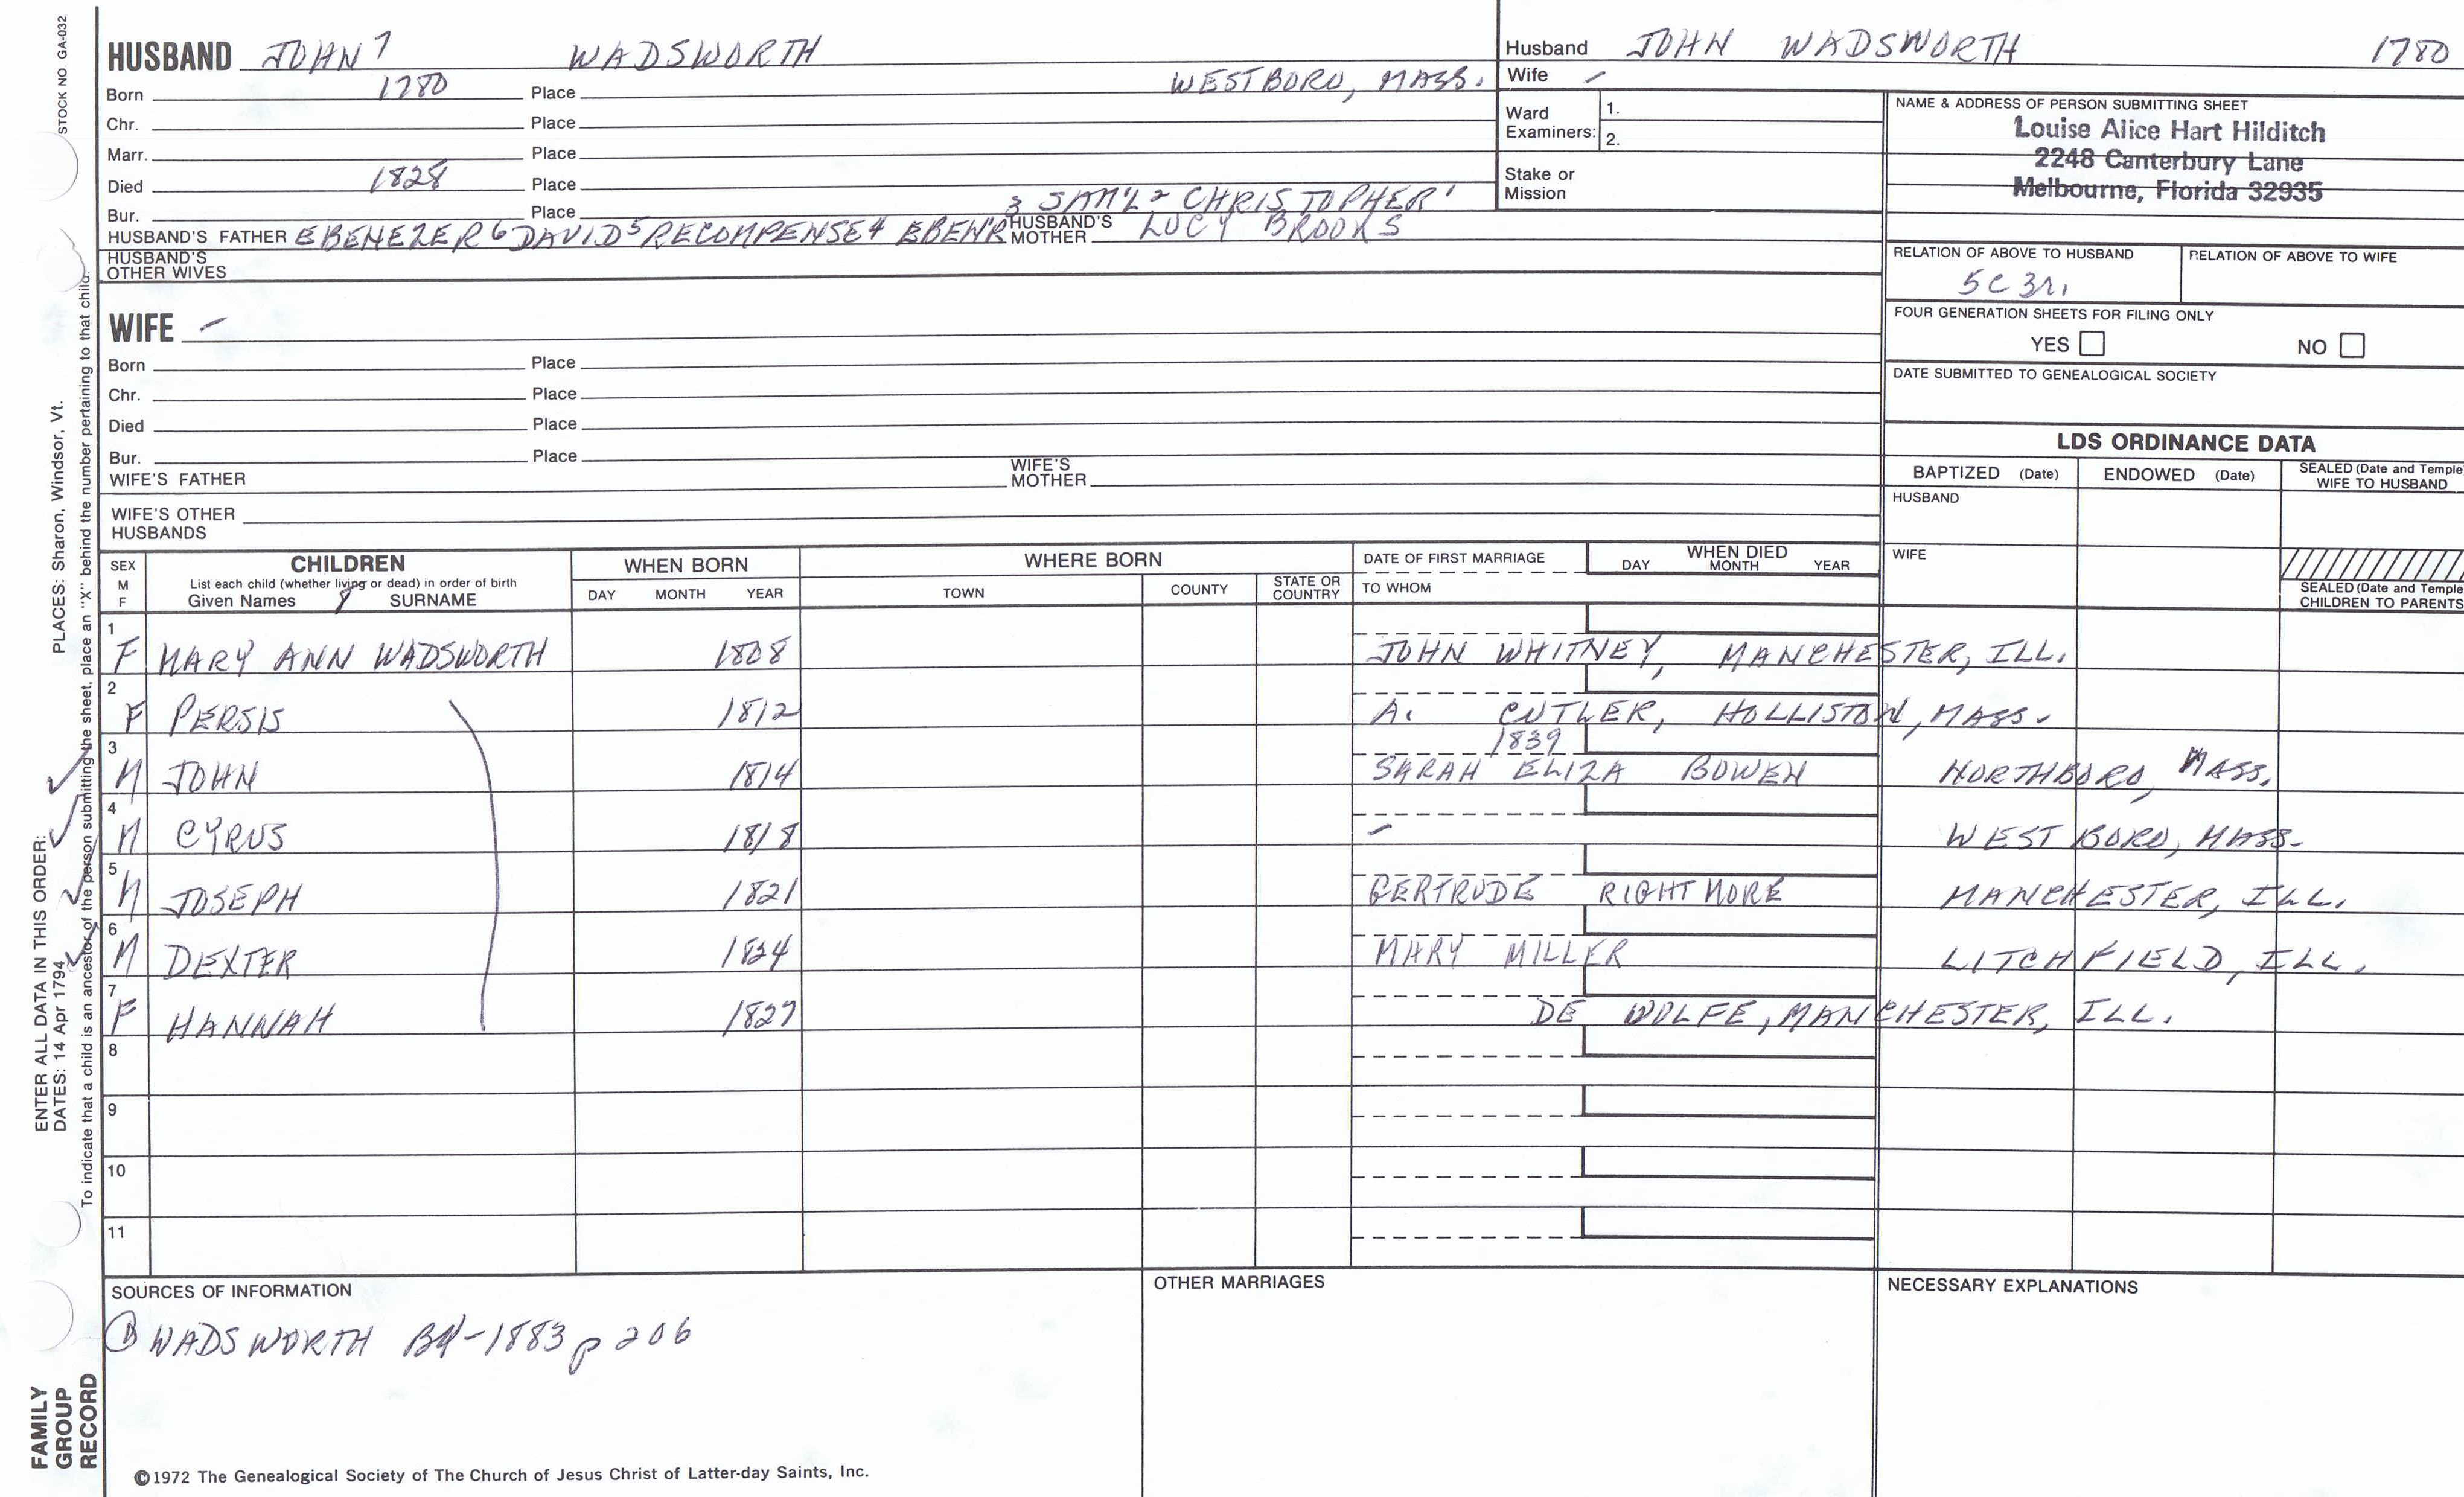 STOCK NO GA-032
HUSBAND JOHN 7 WADSWORTH
Born 1780 Place WESTBORO, MASS.
Chr. Place
Marr. Place
Died 1828 Place
Bur. Place 3 SAM'L 2 CHRISTOPHER 1
HUSBAND'S FATHER EBENEZER 6 DAVID 5 RECOMPENSE 4 EBEN'R HUSBAND'S MOTHER LUCY BROOKS
HUSBAND'S OTHER WIVES
WIFE -
Born Place
Chr. Place
Died Place
Bur. Place
WIFE'S FATHER WIFE'S MOTHER
WIFE'S OTHER HUSBANDS
Husband JOHN WADSWORTH 1780
Wife -
Ward Examiners: 1.
2.
Stake or Mission
NAME & ADDRESS OF PERSON SUBMITTING SHEET
Louise Alice Hart Hilditch
2248 Canterbury Lane
Melbourne, Florida 32935
RELATION OF ABOVE TO HUSBAND RELATION OF ABOVE TO WIFE
5C 3r.
FOUR GENERATION SHEETS FOR FILING ONLY
YES NO
DATE SUBMITTED TO GENEALOGICAL SOCIETY
LDS ORDINANCE DATA
BAPTIZED (Date) ENDOWED (Date) SEALED (Date and Temple
WIFE TO HUSBAND
HUSBAND
WIFE
SEALED (Date and Temple
CHILDREN TO PARENTS
SEX M F CHILDREN WHEN BORN WHERE BORN DATE OF FIRST MARRIAGE WHEN DIED
List each child (whether living or dead) in order of birth
Given Names 8 SURNAME DAY MONTH YEAR TOWN COUNTY STATE OR COUNTRY TO WHOM DAY MONTH YEAR
1 F MARY ANN WADSWORTH 1808 JOHN WHITNEY, MANCHESTER, ILL.
2 F PERSIS 1812 A. CUTLER, HOLLISTON, MASS.
1839
3 M JOHN 1814 SARAH ELIZA BOWEN NORTHBORO, MASS.
4 M CYRUS 1818 - WESTBORO, MASS.
5 M JOSEPH 1821 GERTRUDE RIGHTMORE MANCHESTER, ILL.
6 M DEXTER 1824 MARY MILLER LITCHFIELD, ILL.
7 F HANNAH 1827 DE WOLFE, MANCHESTER, ILL.
8
9
10
11
SOURCES OF INFORMATION
WADSWORTH 1883 p 206
OTHER MARRIAGES
NECESSARY EXPLANATIONS
©1972 The Genealogical Society of The Church of Jesus Christ of Latter-day Saints, Inc.
FAMILY GROUP RECORD
ENTER ALL DATA IN THIS ORDER:
DATES: 14 Apr 1794 PLACES: Sharon, Windsor, Vt.
To indicate that a child is an ancestor of the person submitting the sheet, place an "X" behind the number pertaining to that child.